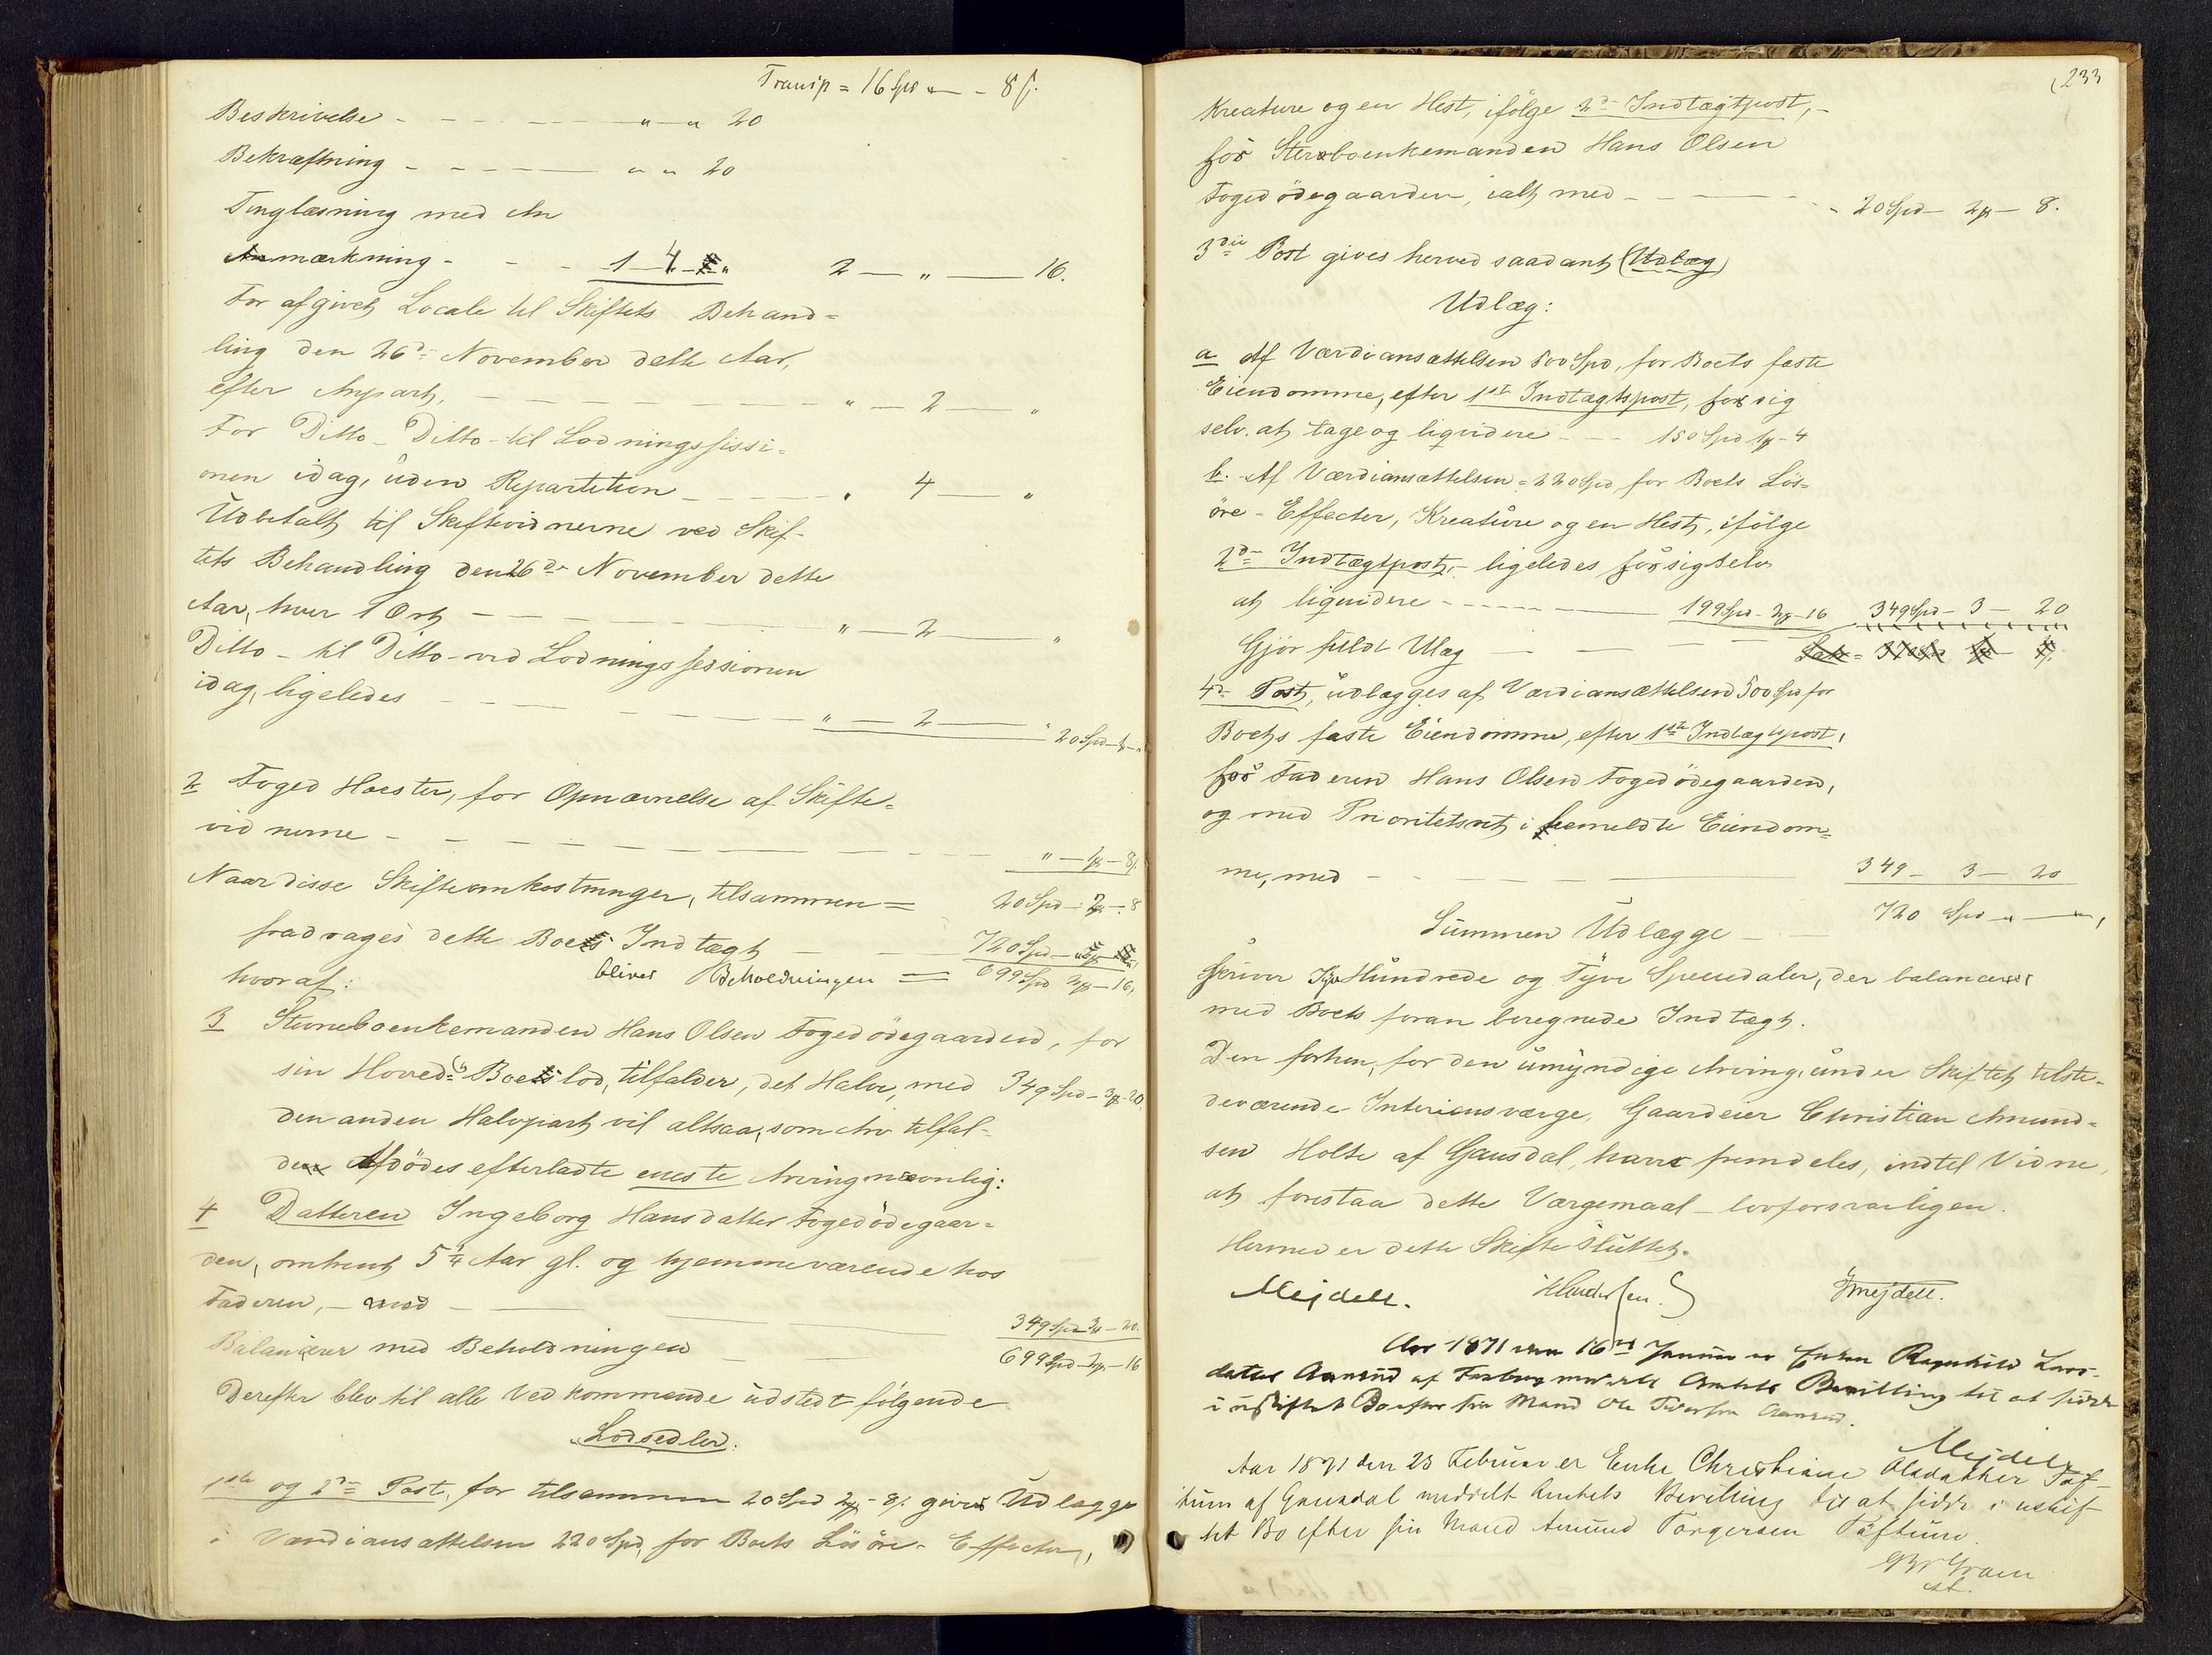 Transp = 16 Spd " - 8 s.
Beskrivelse - - - - " - " 20
Bekræftning - - - - " " 20
Tinglæsning med An
mærkning - - - 1 - 4 - " 2 - " - 16.
For afgivet Locale til Skiftets Behand=
ling den 26de November dette Aar,
efter Anpart, - - - - " - 2 - "
For Ditto - Ditto - til Lodningssessi=
onen idag, uden Repartition - - - " 4 - "
Udbetalt til Skiftevidnerne ved Skif-
tets Behandling den 26de November dette
Aar, hver 1 Ort - - - - " - 2 - "
Ditto - til Ditto - ved Lodningssessionen
idag, ligeledes - - - - " - 2 - " 20 Spd - 1 - "
2 Foged Hoester, for Opnævnelse af Skifte=
vidnerne - - - - " - 1 - 8 s.
Naar disse Skifteomkostninger, tilsammen = 20 Spd - 2 - 8
fradrages dette Boets Indtægt - - 720 Spd - " "
hvoraf: bliver Beholdningen = 699 Spd 2 - 16,
3 Sterveboenkemanden Hans Olsen Fogedödegaarden, for
sin Hoved= Boeslod, tilfalder, det Halve, med 349 Spd - 3 - 20.
den anden Halvpart vil altsaa, som Arv tilfal-
de Afdödes efterladte eneste Arving nemlig:
4 Datteren Ingeborg Hansdatter Fogedödegaar=
den, omtrent 5 1/4 Aar gl. og hjemmeværende hos
Faderen, - med - - 349 Spd 3 - 20.
Balancerer med Beholdningen - 699 Spd - 2 - 16
Derefter blev til alle Vedkommende udstedt følgende
Lodsedler.
1ste og 2den Post, for tilsammen 20 Spd 2 - 8 s. gives Udlægge
i Værdiansættelsen 220 Spd, for Boets Lösöre - Effecter,
233
Kreature og en Hest, ifölge 2den Indtægtpost, -
for Sterboenkemanden Hans Olsen
Fogedödegaarden, ialt med - - - 20 Spd - 2 - 8.
3die Post gives herved saadant (Udlæg)
Udlæg:
a Af Værdiansættelsen 500 Spd, for Boets faste
Eiendomme, efter 1ste Indtægtspost, for sig
selv at tage og liqvidere - - 150 Spd 1 - 4
b. Af Værdiansættelsen = 220 Spd for Boets Lös=
öre - Effecter, Kreature og en Hest, ifölge
2den Indtægtpost, - ligeledes for sig selv
at liquidere - - - 199 Spd - 2 - 16 349 Spd - 3 - 20
Gjör fuldt Ulæg - - -
4de Post, udlægges af Værdiansættelsen 500 Spd for
Boets faste Eiendomme, efter 1ste Indtægtspost,
for Faderen Hans Olsen Fogedödegaarden,
og med Prioritetsret i bemeldte Eiendom=
me, med - - - 349 - 3 - 20
Summen Udlægge - - 720 Spd - " - "
skriver Syv Hundrede og Tyve Speciedaler, der balancerer
med Boets foran beregnede Indtægt.
Den forhen, for den umyndige Arving, under Skiftet tilste-
deværende Interimsværge, Gaardeier Christian Amund-
sen Holte af Gausdal, haver fremdeles, indtil Vidne,
at forestaa dette Værgemaal - lovforsvarligen.
Hermed er dette Skifte sluttet.
Mejdell. JMejdell.
Aar 1871 den 16de Januar er Enken Ragnhild Lars-
datter Aanrud af Faaberg meddelt Amtets Bevilling til at sidde
i uskiftet Bo efter sin Mand Ole Aanrud.
Mejdell
Aar 1871 den 23 Februar er Enke Christiane Olsdatter Töf-
tum af Gausdal meddelt Amtets Bevilling til at sidde i uskif-
tet Bo efter sin Mand Amund Torgersen Töftum
Gram